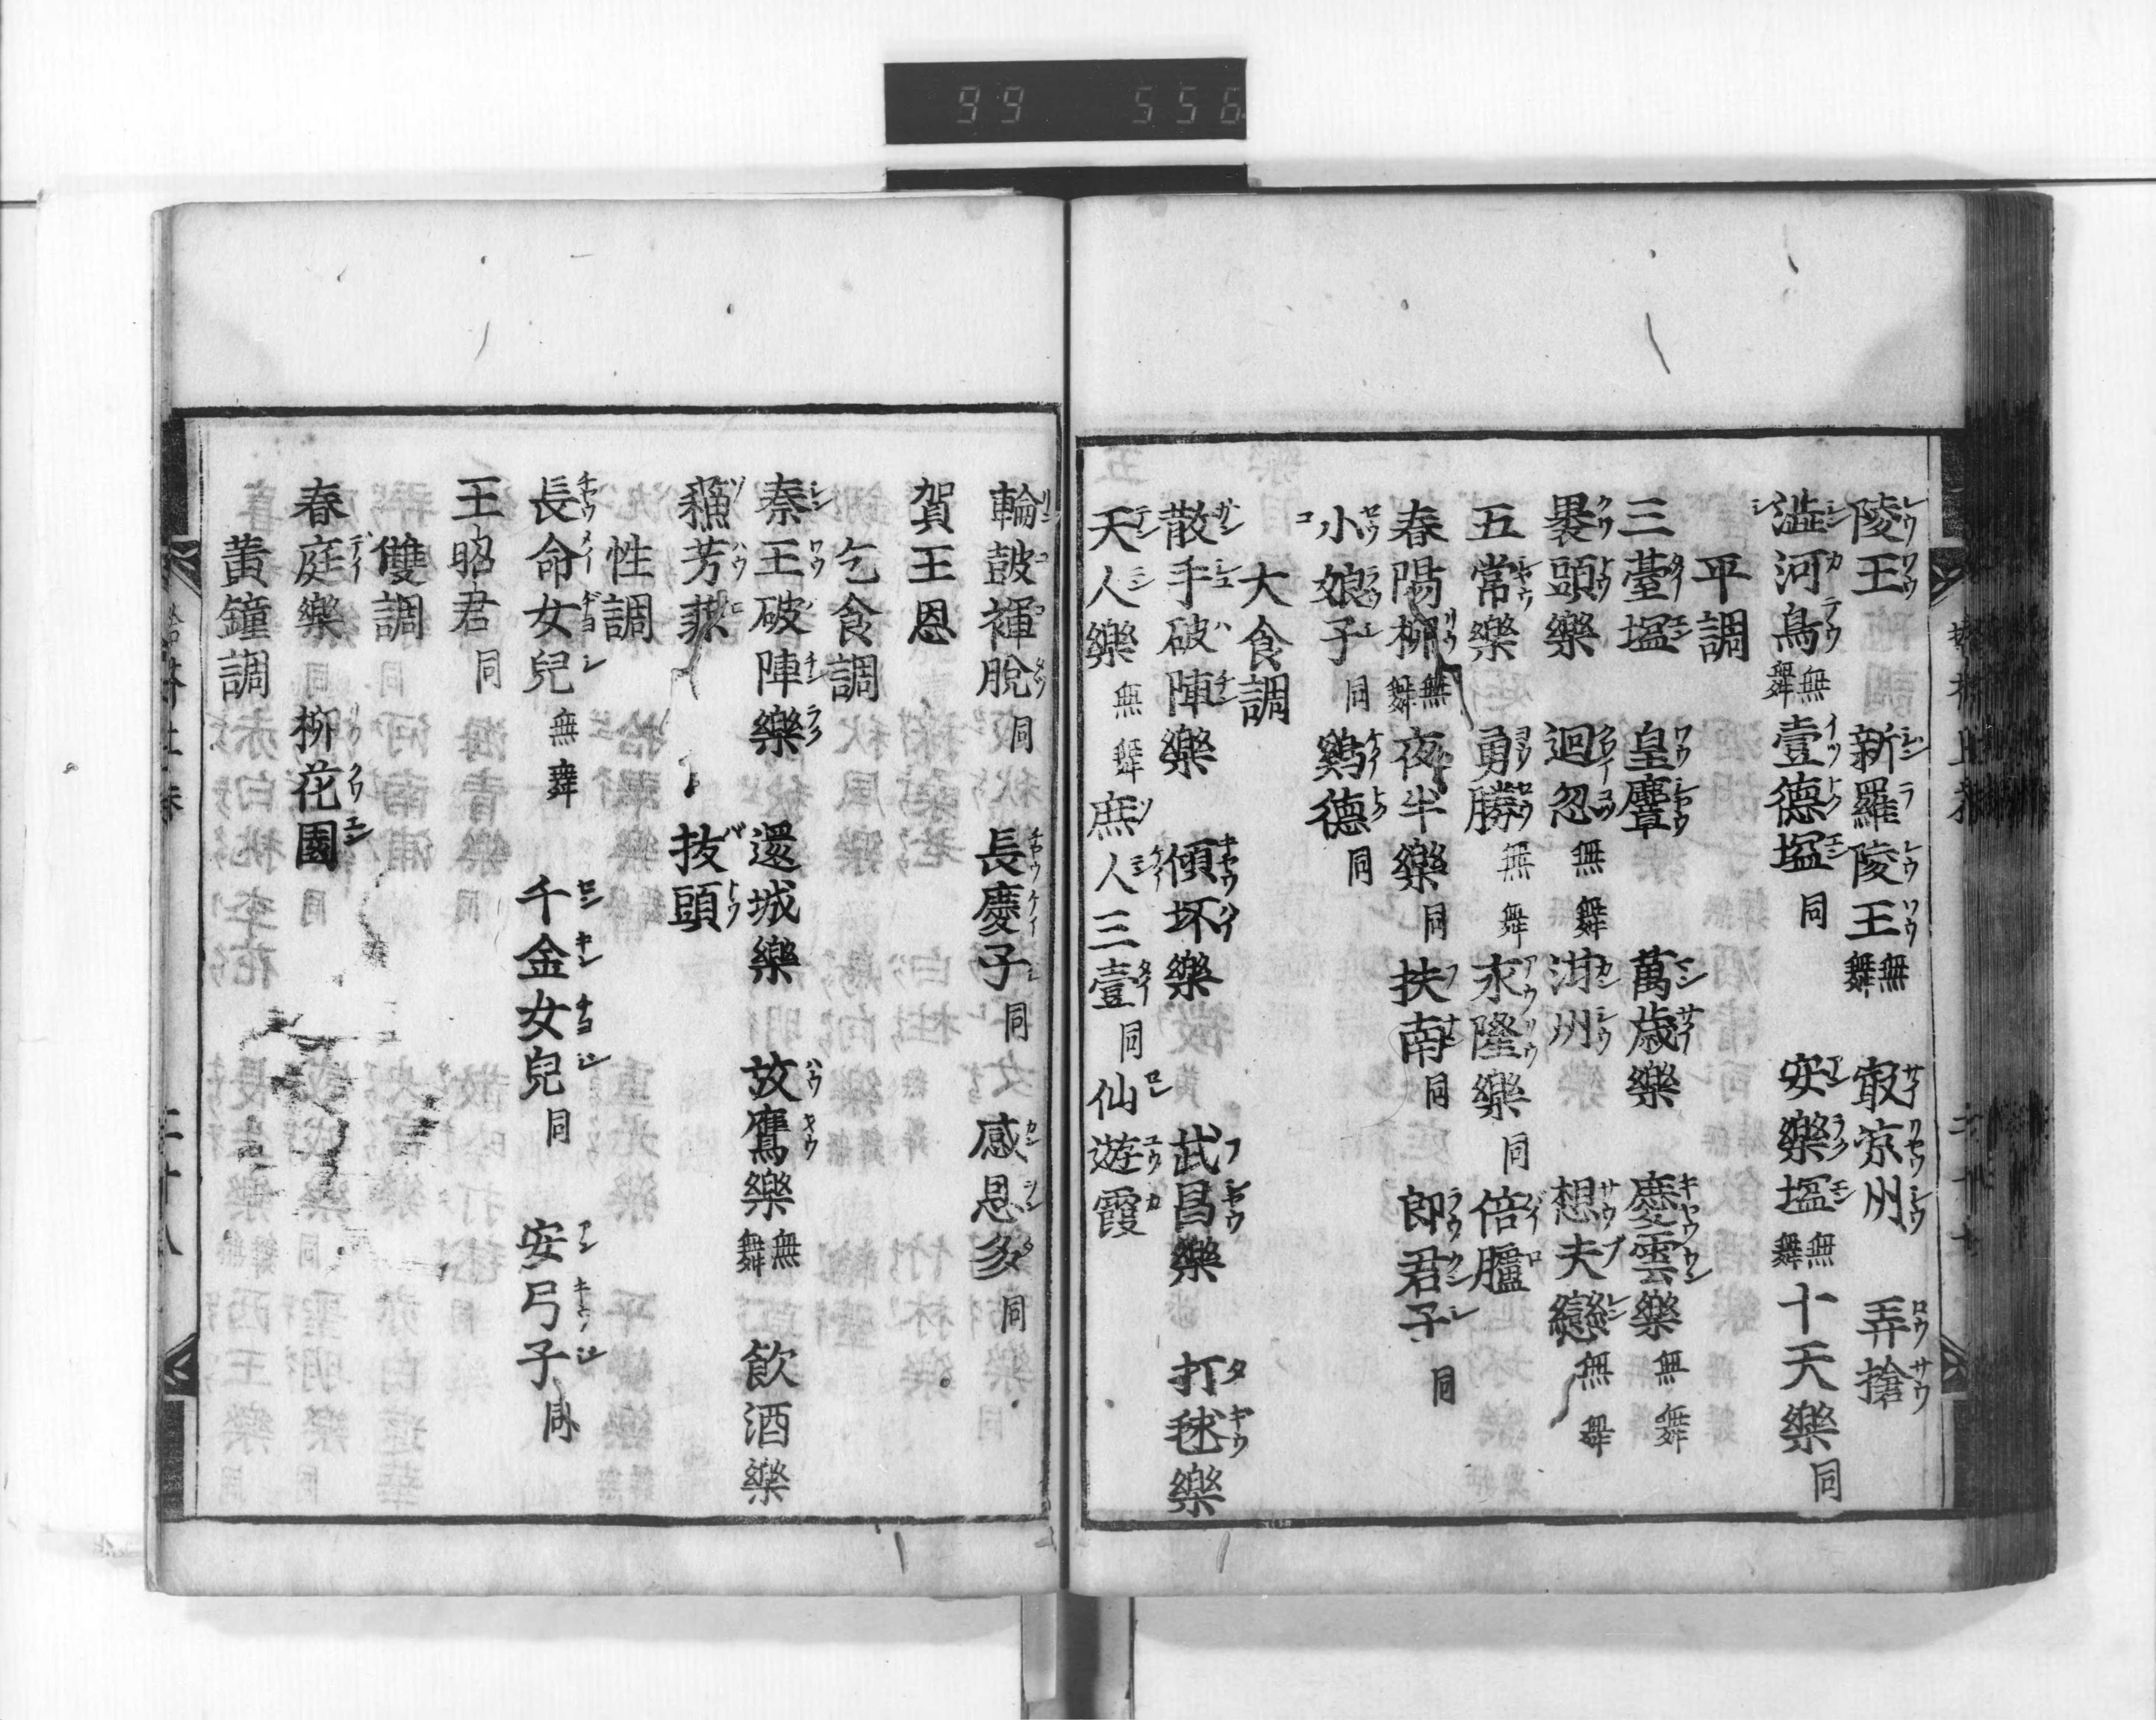 陵王　新羅陵王無舞　㝡凉州　弄搶
澁河鳥無舞　壹德塩同　安樂塩無舞　十天樂同
平調
三臺塩　皇麞　萬歳樂　慶雲樂無舞
褁頭樂　迴忽無舞　泔州　想夫戀無舞
五常樂　勇勝無舞　永隆樂同　倍臚
春陽柳無舞　夜半樂同　扶南同　郎君子同
小娘子同　鷄德同
大食調
散手破陣樂　傾坏樂　武昌樂　打毬樂
天人樂無舞　庶人三壹同　仙遊霞
輪皷褌脫同　長慶子同　感恩多同
賀王恩
乞食調
秦王破陣樂　還城樂　放鷹樂無舞　飮酒樂
蘓芳菲　抜頭
性調
長命女兒無舞　千金女兒同　安弓子同
王昭君同
雙調
春庭樂　柳花園
黃鐘調
99 556